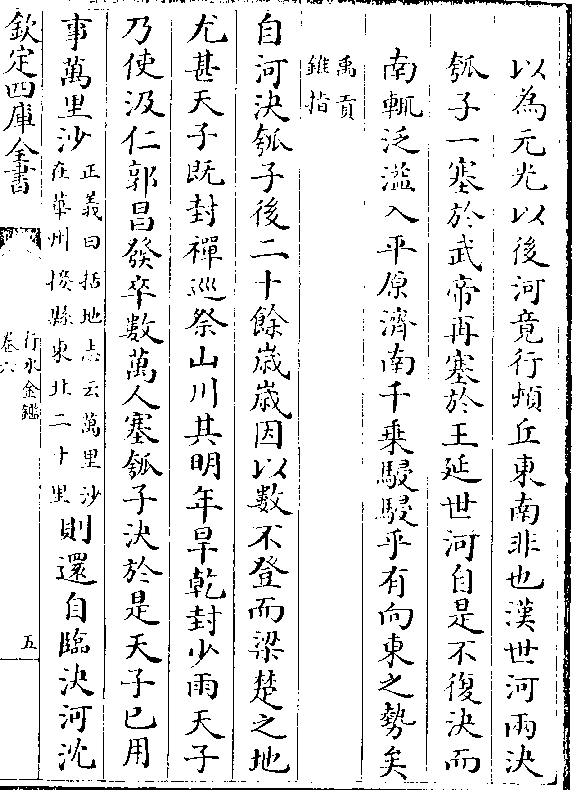 以為元光以後河竟行頓丘東南非也漢世河兩決
瓠子一塞於武帝再塞於王延世河自是不復決而
南輒泛濫入平原濟南千乘駸駸乎有向東之勢矣
禹貢
錐指
自河決瓠子後二十餘歲歲因以數不登而梁楚之地
尤甚天子既封禪巡祭山川其明年旱乾封少雨天子
乃使汲仁郭昌發卒數萬人塞瓠子決於是天子已用
事萬里沙
正義曰括地志云萬里沙
在華州
縣東北二十里
則還自臨決河沈
欽定四庫全書
行水金鑑
卷六
五